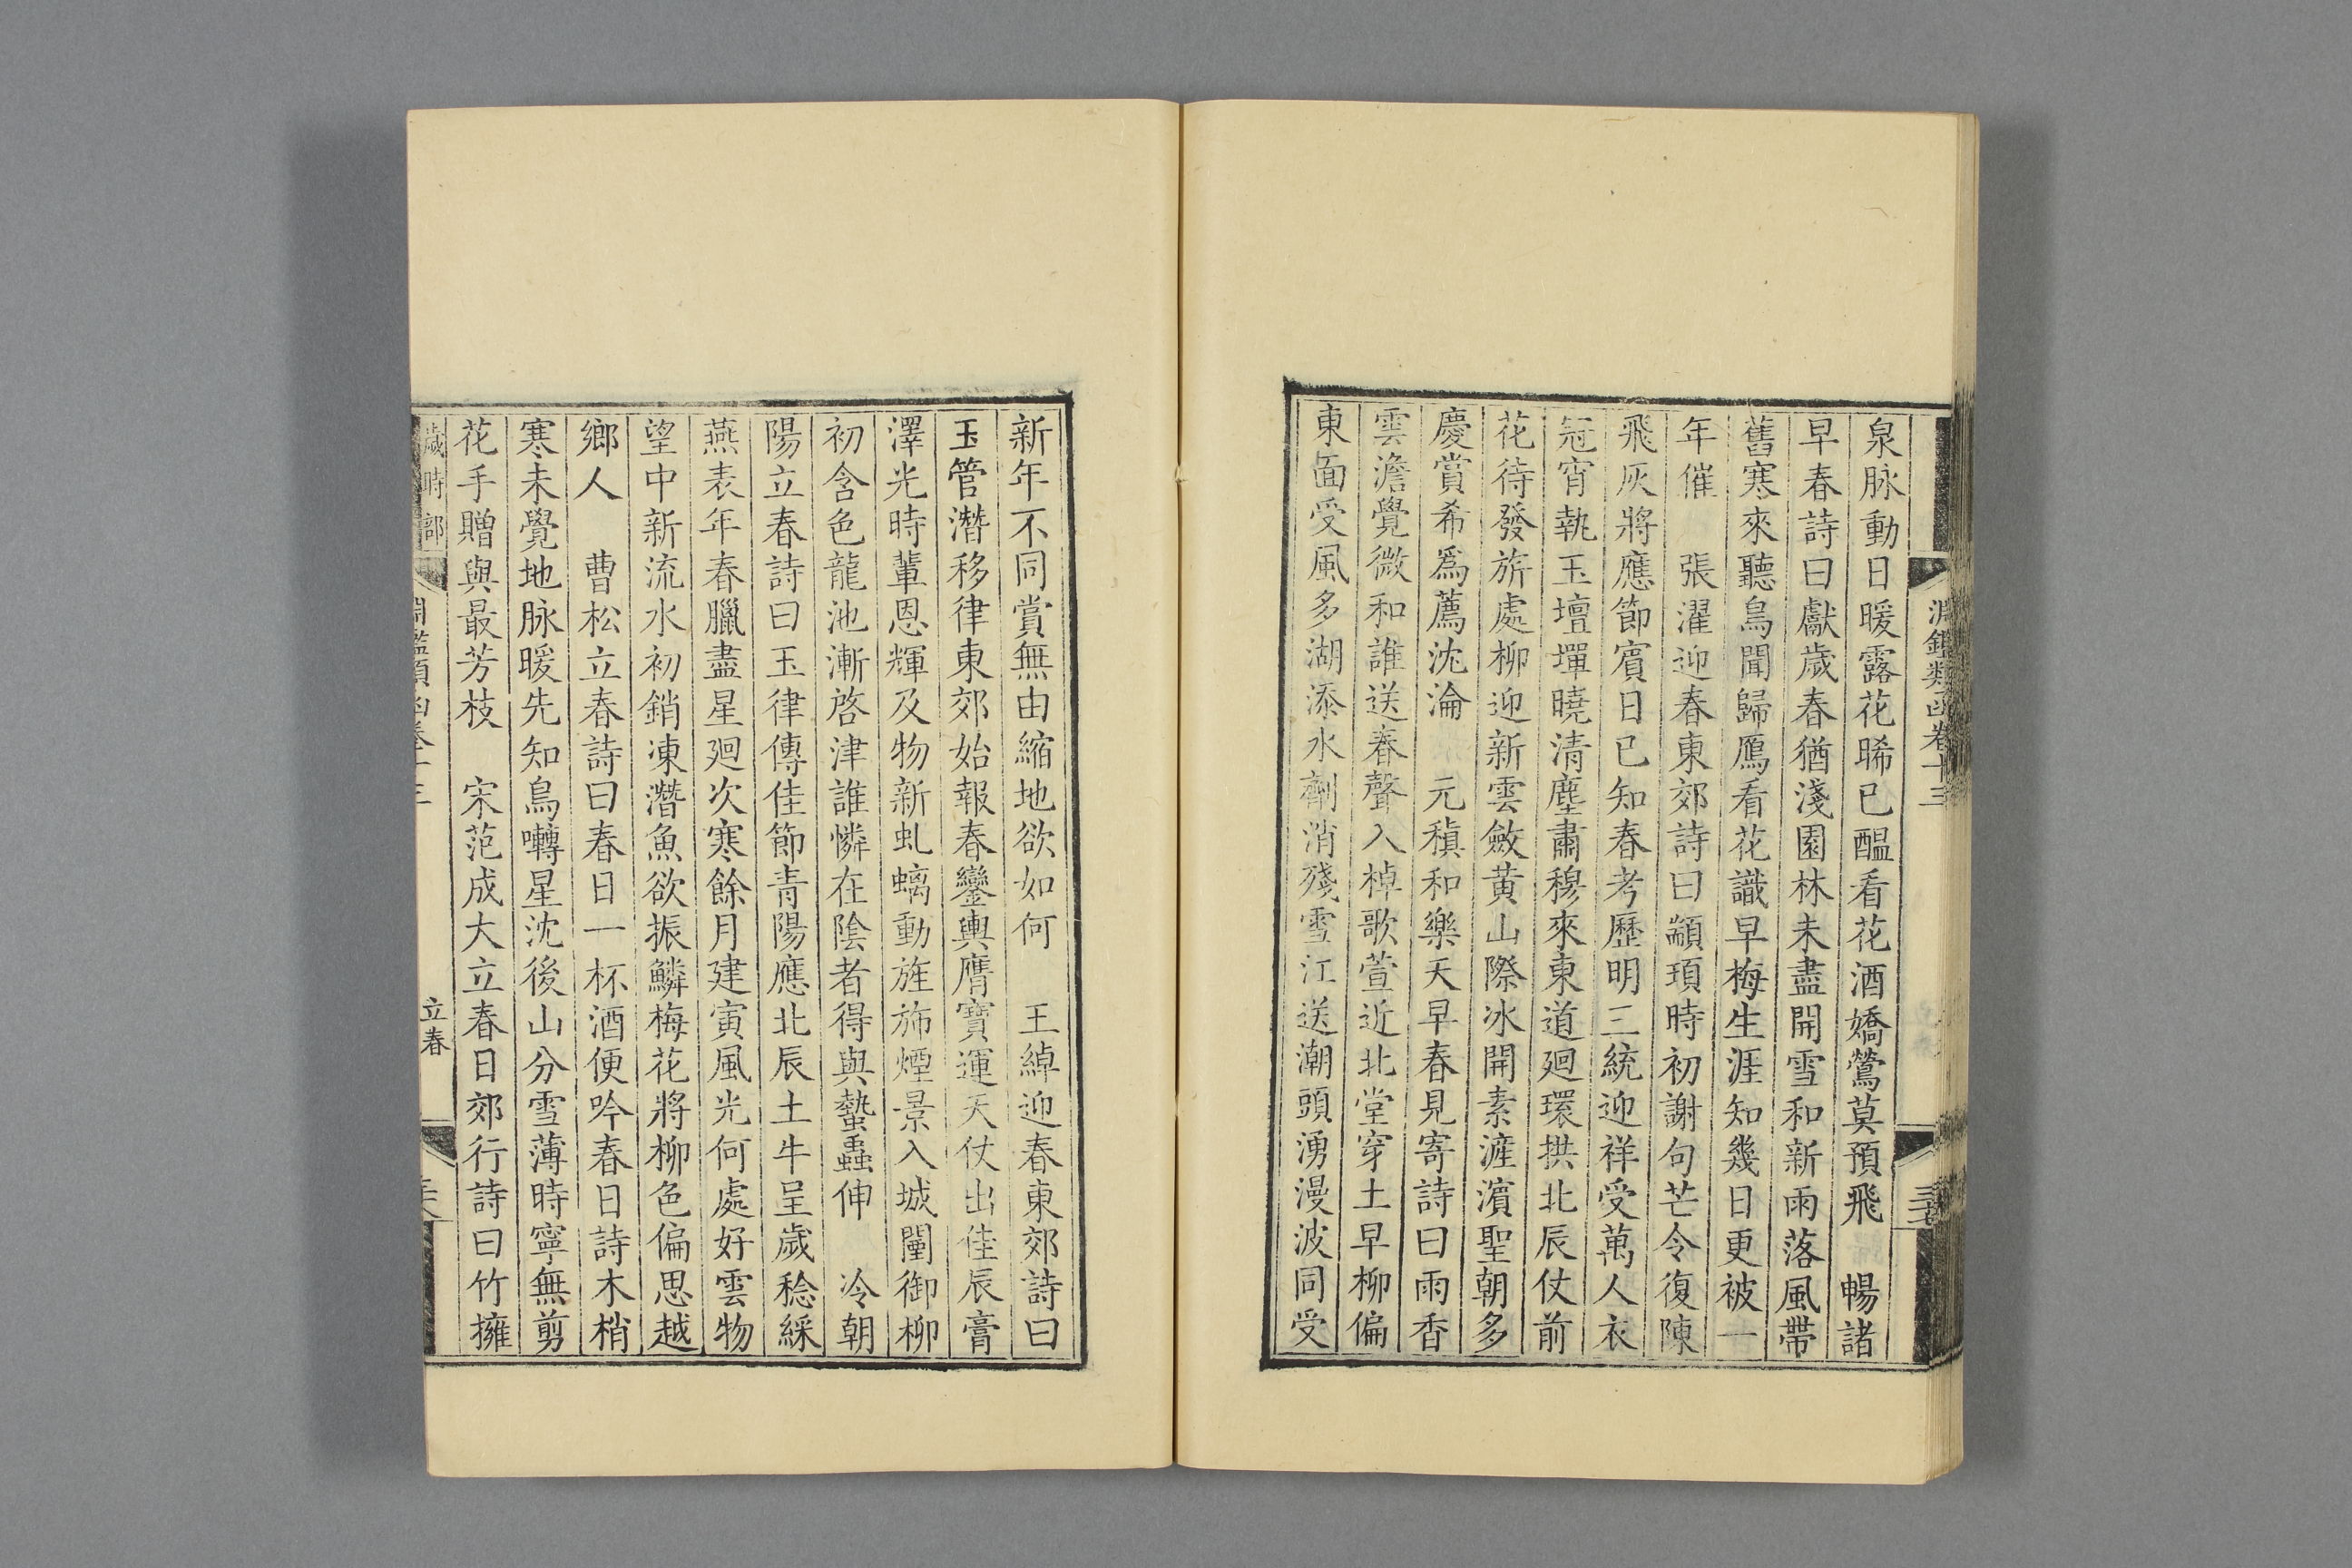 淵鑑類函卷十三
泉脉動日暖露花晞已醖看花酒嬌鶯莫預飛　暢諸
早春詩曰獻歲春猶淺園林未盡開雪和新雨落風帶
舊寒來聽鳥聞歸鴈看花識早梅生涯知幾日更被一
年催　張濯迎春東郊詩曰顓頊時初謝句芒令復陳
飛灰將應節賓日已知春考歷明三統迎祥受萬人衣
冠宵執玉壇墠曉清塵肅穆來東道廻環拱北辰仗前
花待發旂處柳迎新雲斂黄山際冰開素滻濱聖朝多
慶賞希爲薦沈淪　元稹和樂天早春見寄詩曰雨香
雲澹覺微和誰送春聲入棹歌萱近北堂穿土早柳偏
東面受風多湖添水劑消殘雪江送潮頭湧漫波同受
新年不同賞無由縮地欲如何　王綽迎春東郊詩曰
玉管潛移律東郊始報春鑾輿膺寶運天仗出佳辰膏
澤光時輩恩輝及物新虬螭動旌旆煙景入城闉御柳
初含色龍池漸啓津誰憐在陰者得與蟄蟲伸　冷朝
陽立春詩曰玉律傳佳節青陽應北辰土牛呈歲稔綵
燕表年春臘盡星廻次寒餘月建寅風光何處好雲物
望中新流水初銷凍潛魚欲振鱗梅花將柳色偏思越
鄉人　曹松立春詩曰春日一杯酒便吟春日詩木梢
寒未覺地脉暖先知鳥囀星沈後山分雪薄時寧無剪
花手贈與最芳枝　宋范成大立春日郊行詩曰竹擁
歲時部　淵鑑類函卷十三　立春